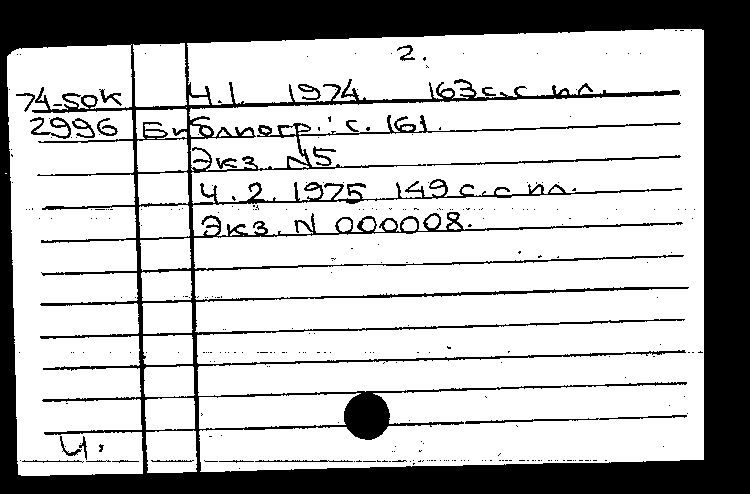 2.
74-50к Ч.1. 1974. 163с.с ил.
2996 Библиогр.: с. 161.
Экз. N5.
Ч.2. 1975 149с.с ил.
Экз. N 000008.
Ч.